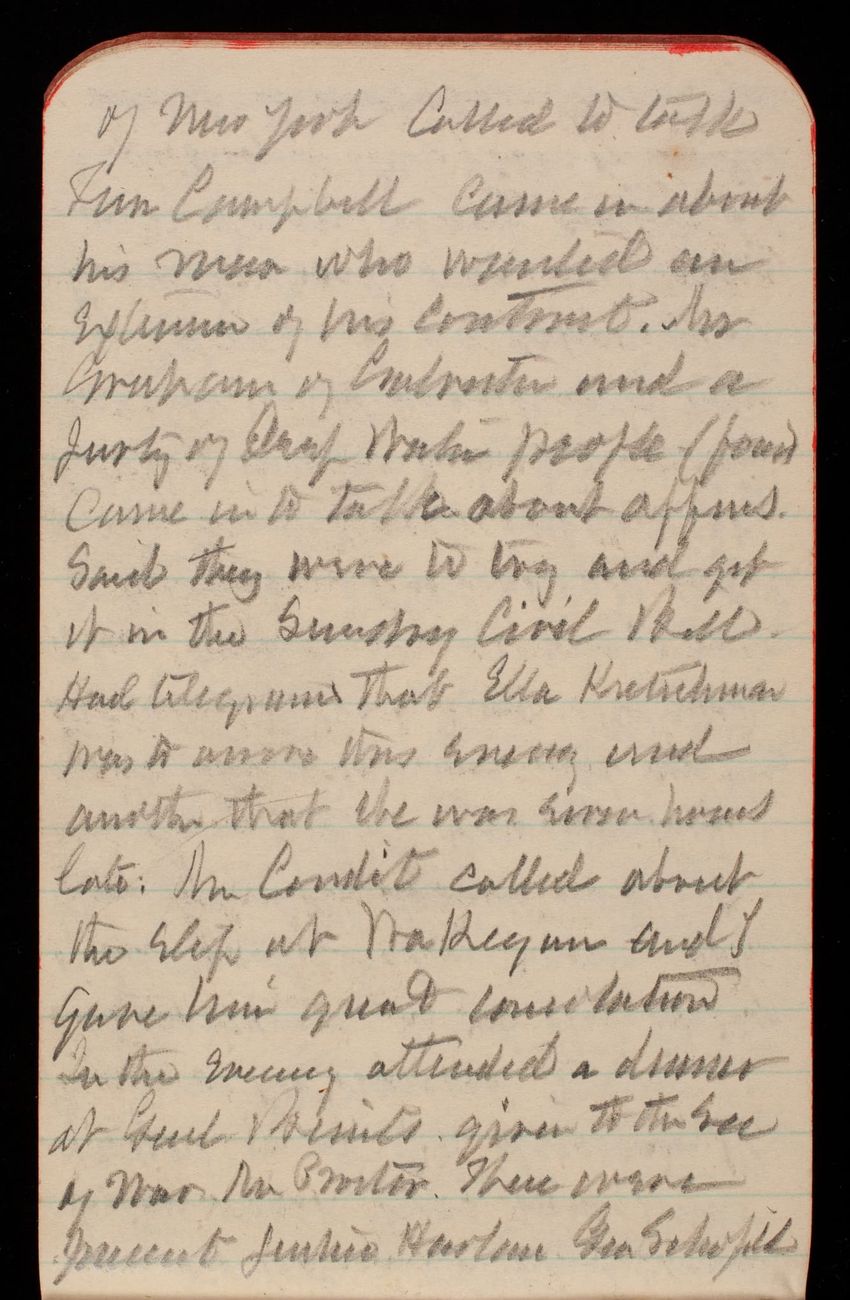 of New York Called to talk
Tim Campbell came in about
his man who wanted an
Extension of his Contract. Mr
Graham of and a
party of Deep Water people (four)
came in to talk about affairs.
Said they were to try and get
it in the Sundry Civil Bill.
Had telegram that Ella Kretschmar
was to arrive this evening and
another that she was seven hours
late. Mr Condit called about
the slip at Waukegan and I
gave him great consolation
In the Evening attended a dinner
at Genl given to the Sec
of War Mr Proctor. There were
present Justice Harlan Gen Schofield